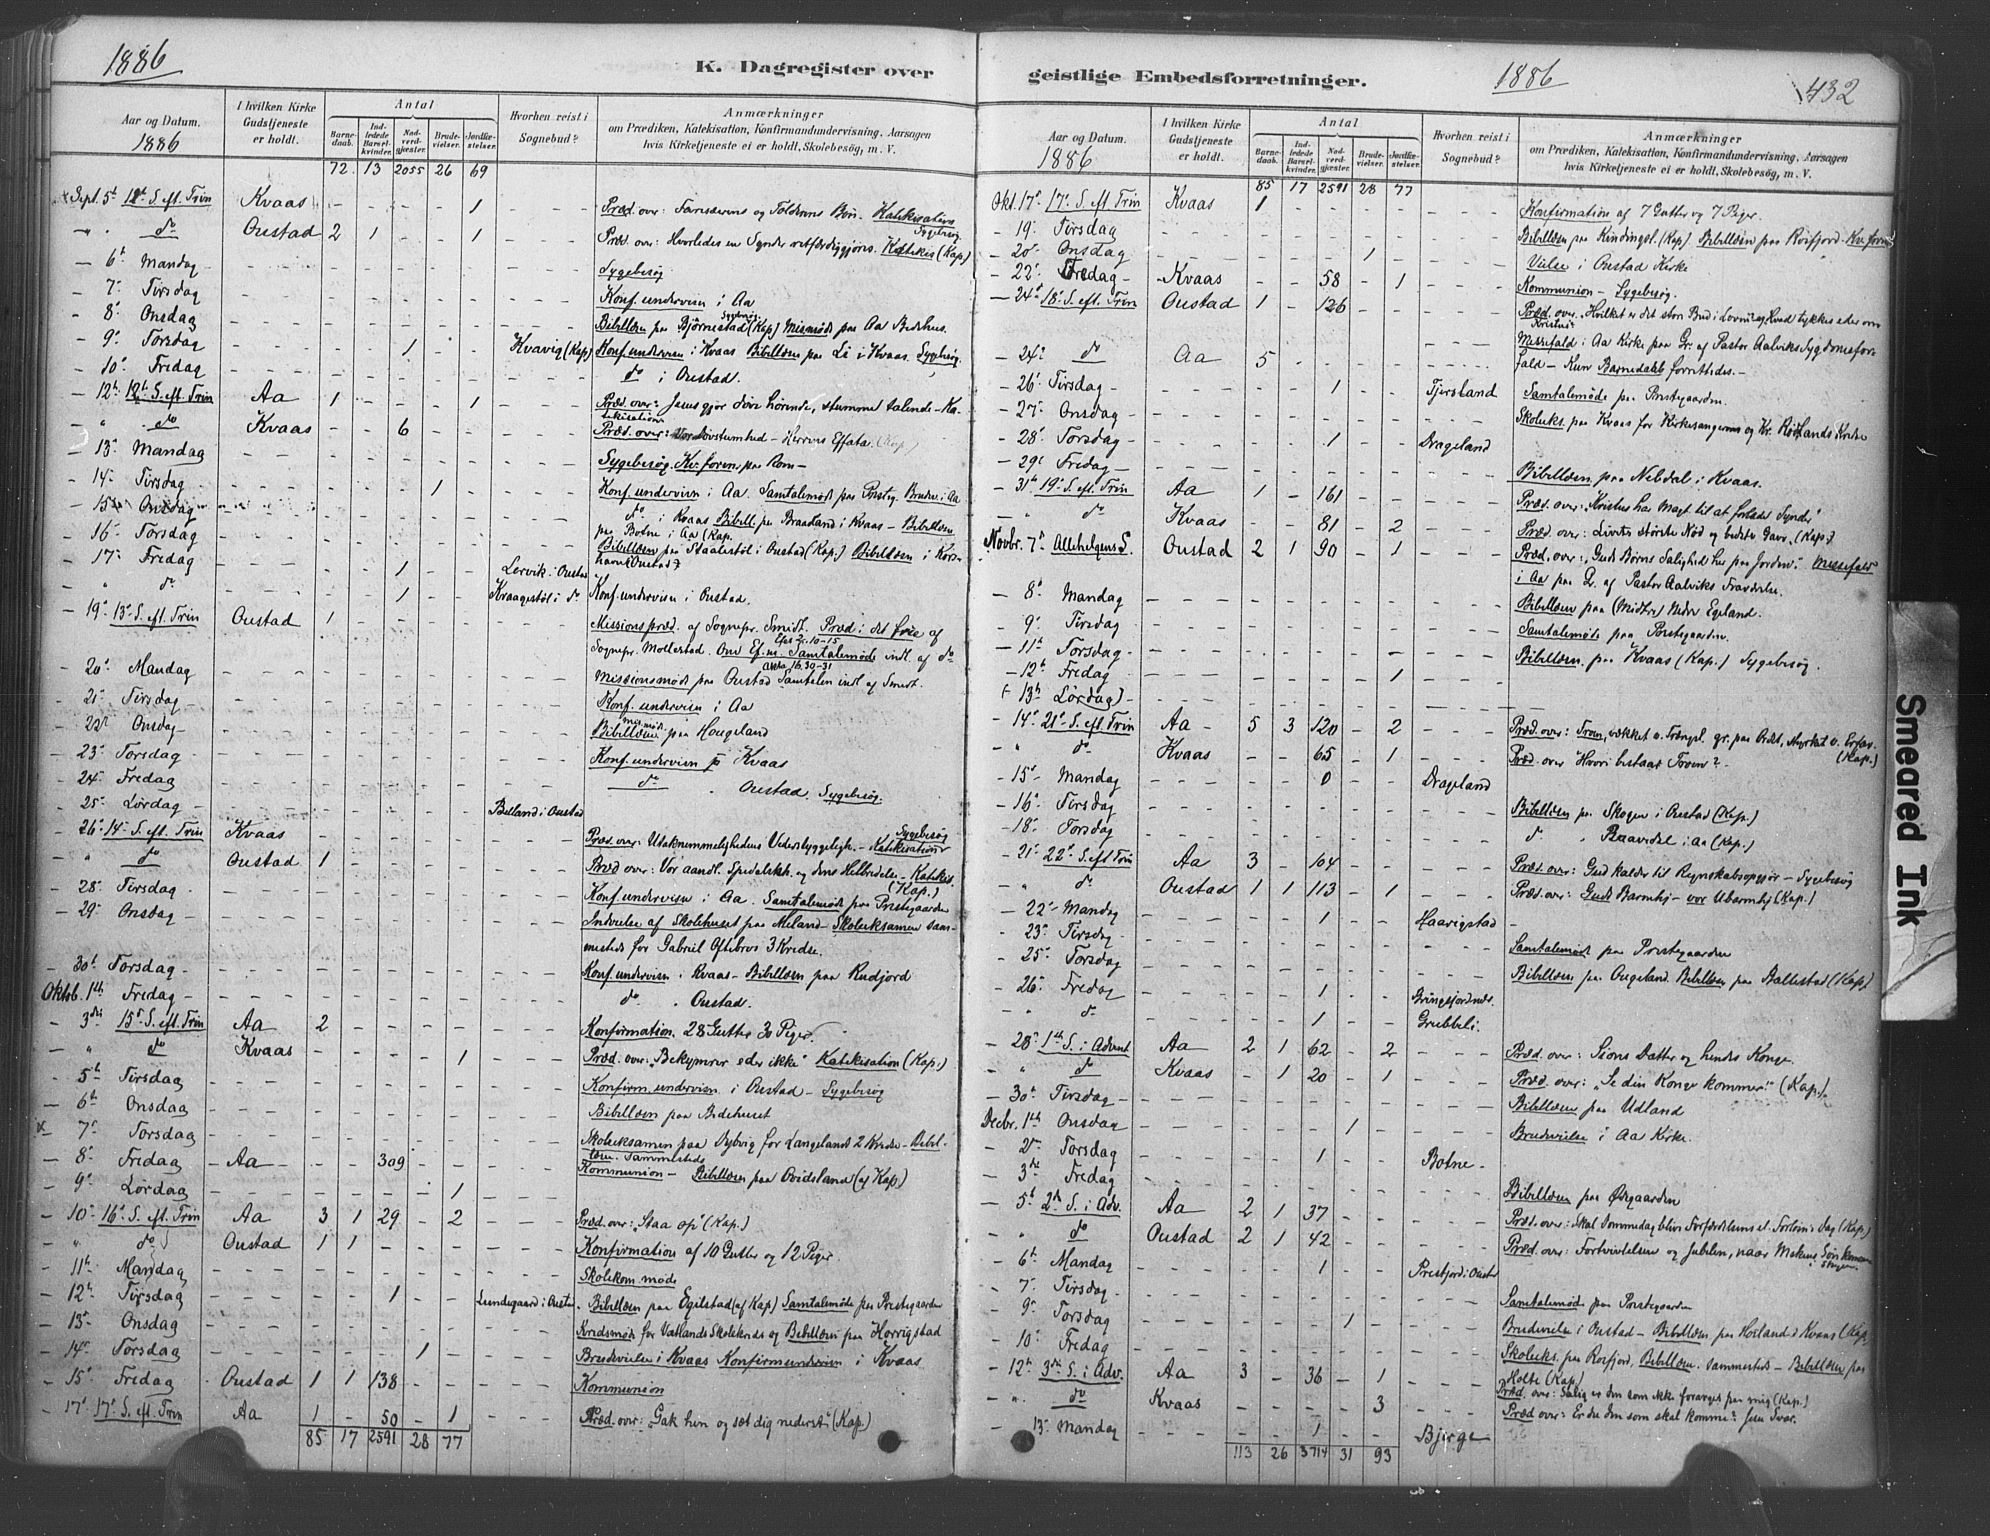 1886
K. Dagregister over
geistlige Embedsforretninger.
1886
432
Aar og Datum.
1886
I hvilken Kirke
Gudstjeneste
er holdt.
Antal
Barne-
daab.
Ind-
ledede
Barsel-
kvinder.
Nad-
verd-
gjæster.
Brude-
vielser.
Jordfæ-
stelser.
Hvorhen reist i
Sognebud?
Anmærkninger
om Prædiken, Katekisation, Konfirmandundervisning, Aarsagen
hvis Kirketjeneste ei er holdt, Skolebesøg, m. V.
72 13 2055 26 69
Sept. 5 S. eft. Trin Kvaas 1 Præd. over: og Bøn. Katekisation
Sygebesøg
do Oustad 2 1 1 Præd. over: Hvorledes en Synder retfærdiggjøres. Katekis (Kap)
6 Mandag Sygebesøg
7 Tirsdag Konf. undervisn i Aa
8 Onsdag Bibellæsn paa Bjørnestad (Kap) Mismøde paa Aa Bedehus.
9 Torsdag 1 Kvavig (Kap) Konf. undervisn i Kvaas Bibellæsn paa Li i Kvaas. Sygebesøg
10 Fredag do i Oustad.
12 S. eft. Trin Aa 1 1 Præd. over: Jesus gjør døve hørende, stumme talende - Ka-
tekisation
do Kvaas 6 Præd. over: Herrens Effata (Kap)
13 Mandag Sygebesøg. Kv. foren. paa Rom
14 Tirsdag 1 Konf. undervisn i Aa. Samtalemøde paa Prsteg. Brudev. i Aa
15 Onsdag do i Kvaas Bibell. paa Braadland i Kvaas - Bibellæsn
paa Botne i Aa (Kap.
16 Torsdag Bibellæsn paa Staalestøl i Oustad (Kap.) Bibellæsn i Kors-
havn (Oustad)
17 Fredag 1 Lervik i Oustad
do 1 Kraagestøl i do Konf. undervisn i Oustad.
19 13 S. eft. Trin Oustad 1 Missionspræd. af Sognepr. Smidt. Præd. i det frie af
Efs 2. 10-15
Sognepr. Mollestad. Om Ef.m. Samtalemøde indl. af do
16. 30-31
20 Mandag Missionsmøde paa Oustad Samtalen indl. af Smidt.
21 Tirsdag Konf. undervisn i Aa
22 Onsdag Bibellæsn paa Hougeland
23 Torsdag Konf. undervisn Kvaas
24 Fredag do Oustad. Sygebesøg.
25 Lørdag Billand i Oustad
26 14 S. eft. Trin Kvaas Præd. over: Utaknemmelighedens - Katekisation
Sygebesøg
do Oustad 1 Præd over: Vor aandl. Spedalskh. og dens Helbredelse - Katekis.
(Kap.)
28 Tirsdag Konf. undervisn i Aa. Samtalemøde paa Prstegaarden
29 Onsdag Indvielse af Skolehuset paa Meland - Skoleeksamen saas-
mesteds for Gabriel Oftebros 3 Kredse.
30 Torsdag Konf. undervisn. Kvaas - Bibellæsn paa Rudjord
Oktob. 1 Fredag do Oustad.
3 15 S. eft. Trin Aa 2 Konfirmation. 28 Gutter 30 Piger.
do Kvaas 1 Præd. over: "Bekymrer eder ikke" Katekisation (Kap.)
5 Tirsdag Konfirm. undervisn. i Oustad - Sygebesøg
6 Onsdag Bibellæsn paa Bedehuset
7 Torsdag Skoleeksamen paa for Langelands 2 Kredse - Bibel-
læsn. sammesteds
8 Fredag Aa 309 Kommunion - Bibellæsn paa Ovidsland (af Kap)
9 Lørdag 1
10 16 S. eft. Trin Aa 3 1 29 2 Præd. over: "Staa op" (Kap.)
do Oustad 1 1 Konfirmation af 10 Gutter og 12 Piger
11 Mandag Skolekom. møde
12 Tirsdag 1 Lundegaard i Oustad. Bibellæsn paa Egilstad (af Kap) Samtalemøde paa Prstegaarden
13 Onsdag Kredsmøde for Vatlands Skolekreds og Bibellæsn paa Horrigstad
14 Torsdag 1 Brudevielse i Kvaas Konfirmundervisn i Kvaas
15 Fredag Oustad 1 1 138 Kommunion
17 17 S. eft. Trin Aa 1 50 1 Præd. over: "Gak hen og sæt dig nederst" (Kap.)
85 17 2591 28 77
Aar og Datum.
1886
I hvilken Kirke
Gudstjeneste
er holdt.
Antal
Barne-
daab.
Ind-
ledede
Barsel-
kvinder.
Nad-
verd-
gjæster.
Brude-
vielser.
Jordfæ-
stelser.
Hvorhen reist i
Sognebud?
Anmærkninger
om Prædiken, Katekisation, Konfirmandundervisning, Aarsagen
hvis Kirketjeneste ei er holdt, Skolebesøg, m. V.
85 17 2591 28 77
Okt. 17 17 S. eft Trin Kvaas 1 Konfirmation af 7 Gutter og 7 Piger.
19 Tirsdag Bibellæsn paa Kindingsl. (Kap) Bibellæsn paa Rosfjord - Kv. foren
20 Onsdag 1 Vielse i Oustad Kirke
22 Fredag Kvaas 58 1 Kommunion - Sygebesøg.
24 18 S. eft Trin Oustad 1 126 Præd. over. "Hvilket er det store Bud i Loven og Hvad tykkes eder om
Kristus"
24 do Aa 5 Messefald i Aa Kirke paa Gr. af Pastor Aalviks Sygdomsfor-
fald - Kun Barnedaab forrettedes -
26 Tirsdag 1 Tjersland Samtalemøde paa Prstegaarden.
27 Onsdag Skoleks. paa Kvaas for Kirkesangerens og Kr. Røislands Kredse
28 Torsdag 1 Drageland
29 Fredag Bibellæsn. paa Nebdal i Kvaas.
31 19 S. eft. Trin Aa 1 161 Præd. over: "Kristus har Magt til at forlade Synder"
do Kvaas 81 2 Præd. over: Livets største Nød og bedste Gave. (Kap.)
Novbr. 7 Allehelgens S. Oustad 2 1 90 1 Præd. over: "Guds Børns Salighed her paa Jorden". Messefald
i Aa paa Gr. af Pastor Aalviks Fraværelse.
8 Mandag Bibellæsn paa (Midtre) Nedre Egeland.
9 Tirsdag Samtalemøde paa Prstegaarden.
11 Torsdag Bibellæsn. paa Kvaas (Kap.) Sygebesøg.
12 Fredag 1
(13 Lørdag)
14 21 S. eft. Trin Aa 5 3 120 2 Præd. over: Troen, vækket v. Trængsl. gr. paa Ordet, styrket v. Erfar.
do Kvaas 65 1 Præd. over Hvori bestaar Troen? - (Kap.)
15 Mandag 0 Drageland
16 Tirsdag Bibellæsn paa Skogen i Oustad (Kap.)
18 Torsdag do Raavdal i Aa (Kap.)
21 22 S. eft Trin Aa 3 104 Præd. over: Gud kalder til Regnskabsopgjør - Sygebesøg
do Oustad 1 1 113 1 Præd. over: Guds Barmhj - vor Ubarmhj (Kap.)
22 Mandag 1 Haarigstad
23 Tirsdag Samtalemøde paa Prstegaarden
25 Torsdag Bibellæsn paa Ougeland. Bibellæsn paa Aallestad (Kap)
26 Fredag 1
do 1 Grubbeli.
28 1 S. i Advent Aa 2 1 62 2 Præd. over: Sions Datter og hendes Konge.
do Kvaas 1 20 1 Præd. over: "Se din Konge kommer!" (Kap.)
30 Tirsdag Bibellæsn paa Udland
Decbr. 1 Onsdag 1 Brudevielse i Aa Kirke.
2 Torsdag 1 Botne
3 Fredag Bibellæsn paa Ødegaarden
5 2 S. i Adv. Aa 2 1 37 Præd. over: Skal Dommedag blive Forfærdelsens el. Forløsn's Dag (Kap)
do Oustad 2 1 42 Præd. over: Fortvivlelsen og Jubelen, naar Mskens Søn kommer
i Skyen.
6 Mandag 1 Prestfjord i Oustad
7 Tirsdag Samtalemøde paa Prstegaarden
9 Torsdag 1 Brudevielse i Oustad - Bibellæsn. paa Hosland i Kvaas (Kap.
10 Fredag Skoleks. paa Rosfjord, Bibellæsn. sammesteds - Bibellæsn paa
Holte (Kap)
12 3 S. i Adv. Aa 3 36 1 Præd. over: Salig er den som ikke forarges paa mig (Kap.)
do Kvaas 3 Præd over: Er du den som skal komme? Jesu Svar.
13 Mandag 1 Bjørge
113 26 3714 31 93
Smeared Ink